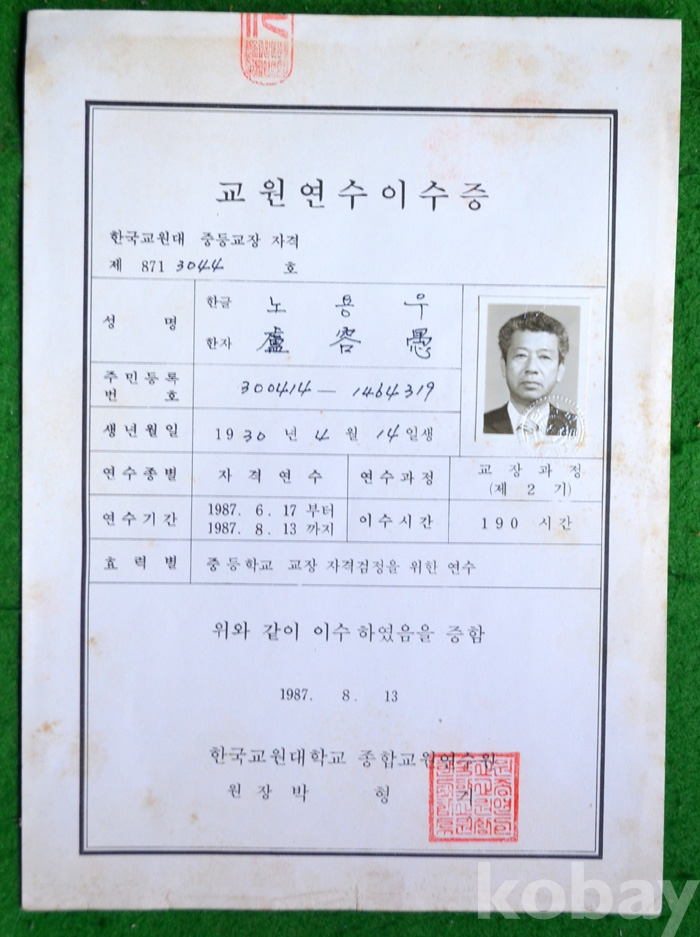 교원연수이수증
한국교원대 중등교장 자격
제 871 3044 호
성 명
한글 노 용 우
한자 盧 容 愚
주민등록 번호 300414 — 1464319
생년월일 1930 년 4 월 14 일생
연수종별 자격연수 연수과정 교장과정 (제 2 기)
연수기간 1987. 6. 17 부터 1987. 8. 13 까지 이수시간 190 시간
효력별 중등학교 교장 자격검정을 위한 연수
위와 같이 이수하였음을 증함
1987. 8. 13
한국교원대학교 종합교원연수원
원장 박 형
kobay